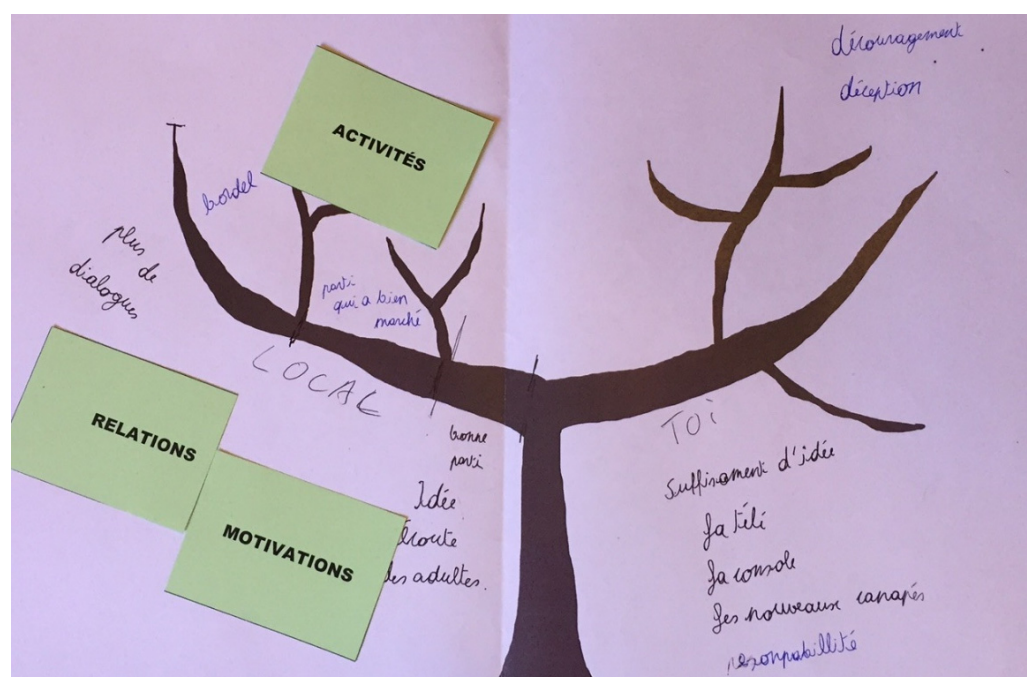 découragement
déception
ACTIVITÉS
bordel
plus de
dialogues
parti
qui a bien
marché
LOCAL
TOi
RELATIONS
bonne
parti
Idée
écoute
des adultes.
MOTIVATIONS
Suffisament d'idée
la télé
la console
les nouveaux canapés